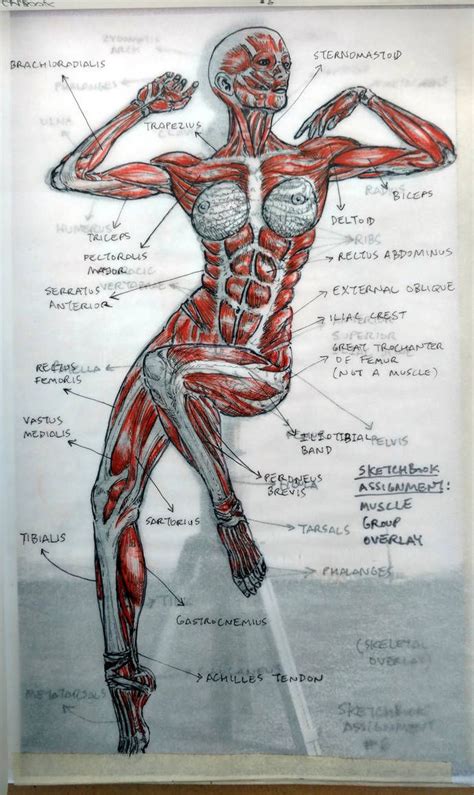 BRACHIORADIALIS
ZYGOMATIC
ARCH
STERNOMASTOID
PHALANGES
TRAPEZIUS
ULNA
HUMERUS
BICEPS
DELTOID
TRICEPS
RIBS
PECTORALIS
MAJOR
RECTUS ABDOMINUS
SERRATUS
ANTERIOR
VERTEBRAE
EXTERNAL OBLIQUE
ILIAC CREST
GREAT TROCHANTER
OF FEMUR
(NOT A MUSCLE)
FEMORIS
VASTUS
MEDIALIS
PELVIS
BAND
SKETCHBOOK
ASSIGNMENT:
MUSCLE
GROUP
OVERLAY
PERONEUS
BREVIS
SARTORIUS
TARSALS
TIBIALIS
PHALANGES
GASTROCNEMIUS
(SKELETAL
OVERLAY)
ACHILLES TENDON
METATARSALS
SKETCHBOOK
ASSIGNMENT